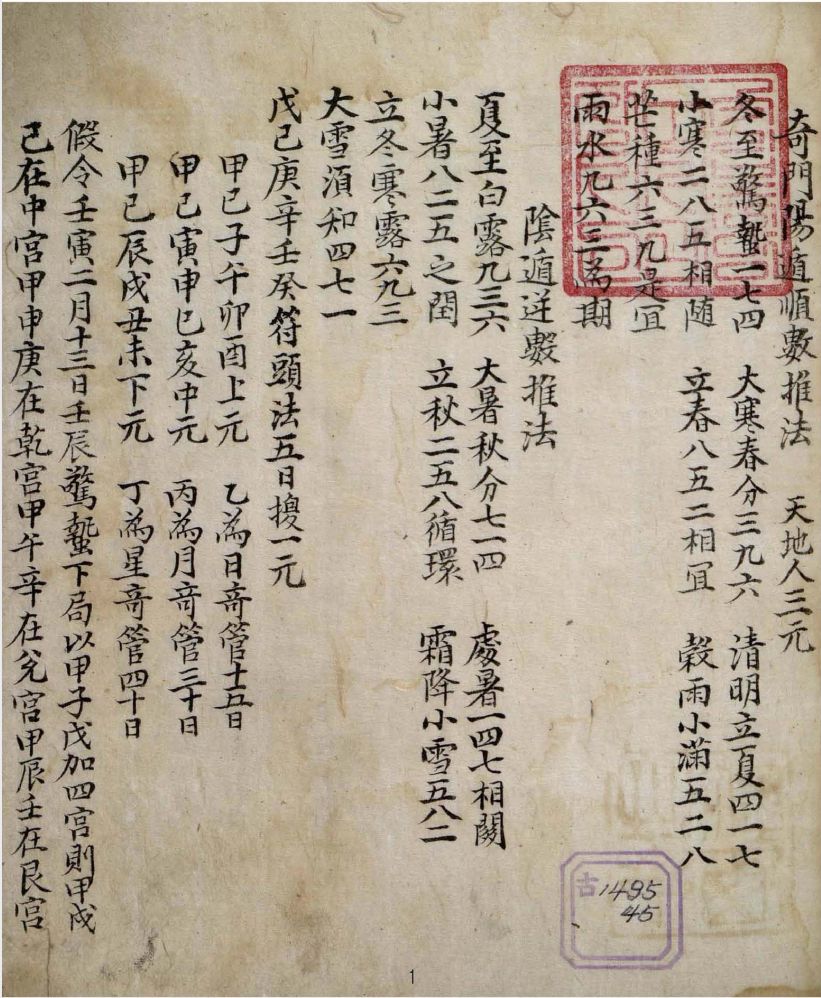 奇門陽遁順數推法　天地人三元
冬至驚蟄一七四　大寒春分三九六　清明立夏四一七
小寒二八五相随　立春八五二相冝　糓雨小滿五二八
芒種六三九是冝
雨水九六三為期
陰遁逆數推法
夏至白露九三六　大暑秋分七一四　處暑一四七相關
小暑八二五之間　立秋二五八循環　霜降小雪五八二
立冬寒露六九三
大雪湏知四七一
戊己庚辛壬癸符頭法五日換一元
甲己子午卯酉上元　乙為日竒管十五日
甲己寅申巳亥中元　丙為月竒管三十日
甲己辰戌丑未下元　丁為星竒管四十日
假令壬寅二月十三日壬辰驚蟄下局以甲子戊加四宮則甲戌
己在中宮甲申庚在乾宮甲午辛在兌宮甲辰壬在艮宮
古1495
45
1